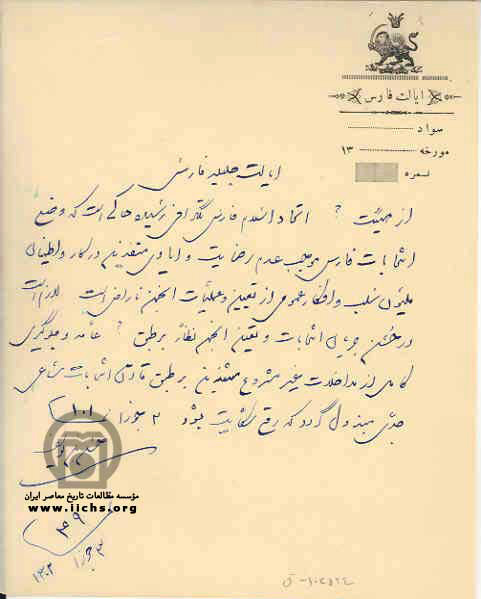 ایالت فارس
سواد
مورخه ۱۳
نمره
ایالت جلیله فارس
از هیئت ؟ اتحاد اسلام فارس تلگرافی رسیده حاکی است که وضع
انتخابات فارس موجب عدم رضایت و ایادی متنفذین در کار و اطمینان
ملیون سلب و افکار عمومی از تعیین و عملیات انجمن ناراضی است لازم است
در حسن جریان انتخابات و تعیین انجمن نظار بر طبق ؟ عامه و جلوگیری
کامل از مداخلات غیر مشروع متنفذین بر طبق قانون انتخابات مساعی
جدی مبذول گردد که رفع شکایت بشود ۲ جوزا ۱۰۱
مؤسسه مطالعات تاریخ معاصر ایران
www.iichs.org
۴۹
۳ جوزا ۱۳۰۲